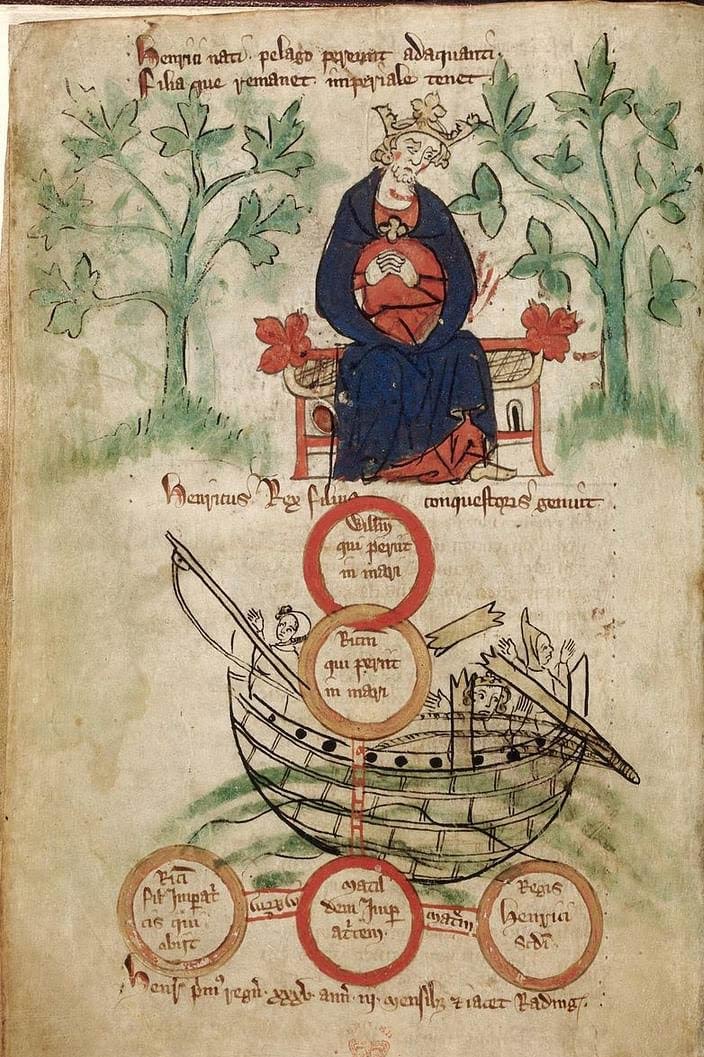 Henrici nati pelago pereunt adaquanti
Filia que remanet imperiale tenet
Henricus Rex filius conquestoris genuit
Willm
qui periit
in mari
Ricm
qui periit
in mari
Rici
fil Impat
cis qui
obiit
Matil
dem Imp
atcem
matrem
Regis
Henrici
scdi
Henr pm regn xxxv ann iii mensib et iacet Rading